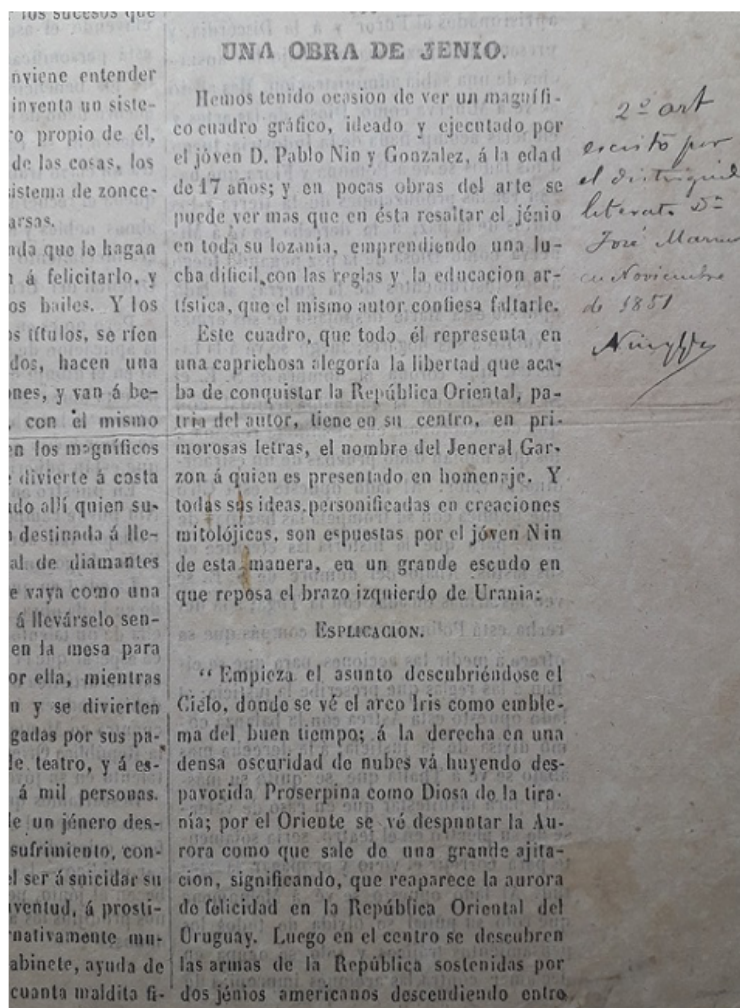 los sucesos que
nviene entender
inventa un siste-
o propio de él,
de las cosas, los
sistema de zonce-
arsas.
ada que le hagan
á felicitarlo, y
os bailes. Y los
s títulos, se ríen
dos, hacen una
nes, y van á be-
, con el mismo
n los magníficos
divierte á costa
do allí quien su-
destinada á lle-
al de diamantes
e vaya como una
á llevárselo sen-
en la mesa para
or ella, mientras
n y se divierten
gadas por sus pa-
e teatro, y á es-
á mil personas.
e un jénero des-
sufrimiento, con-
l ser á suicidar su
ventud, á prosti-
rnativamente mu-
abinete, ayuda de
cuanta maldita fi-
UNA OBRA DE JENIO.
Hemos tenido ocasion de ver un magnífi-
co cuadro gráfico, ideado y ejecutado por
el jóven D. Pablo Nin y Gonzalez, á la edad
de 17 años; y en pocas obras del arte se
puede ver mas que en ésta resaltar el jénio
en toda su lozania, emprendiendo una lu-
cha dificil, con las reglas y la educacion ar-
tística, que el mismo autor confiesa faltarle.
Este cuadro, que todo él representa en
una caprichosa alegoría la libertad que aca-
ba de conquistar la República Oriental, pa-
tria del autor, tiene en su centro, en pri-
morosas letras, el nombre del Jeneral Gar-
zon á quien es presentado en homenaje. Y
todas sus ideas, personificadas en creaciones
mitolójicas, son espuestas por el jóven Nin
de esta manera, en un grande escudo en
que reposa el brazo izquierdo de Urania:
ESPLICACION.
“Empieza el asunto descubriéndose el
Cielo, donde se vé el arco Iris como emble-
ma del buen tiempo; á la derecha en una
densa oscuridad de nubes vá huyendo des-
pavorida Proserpina como Diosa de la tira-
nía; por el Oriente se vé despuntar la Au-
rora como que sale de una grande ajita-
cion, significando, que reaparece la aurora
de felicidad en la República Oriental del
Uruguay. Luego en el centro se descubren
las armas de la República sostenidas por
dos jénios americanos descendiendo entre
2º art
escrito por
el distinguid
literato Dn
José Marm
en Noviembre
de 1851